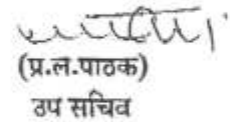 (प्र.ल.पाठक)
उप सचिव